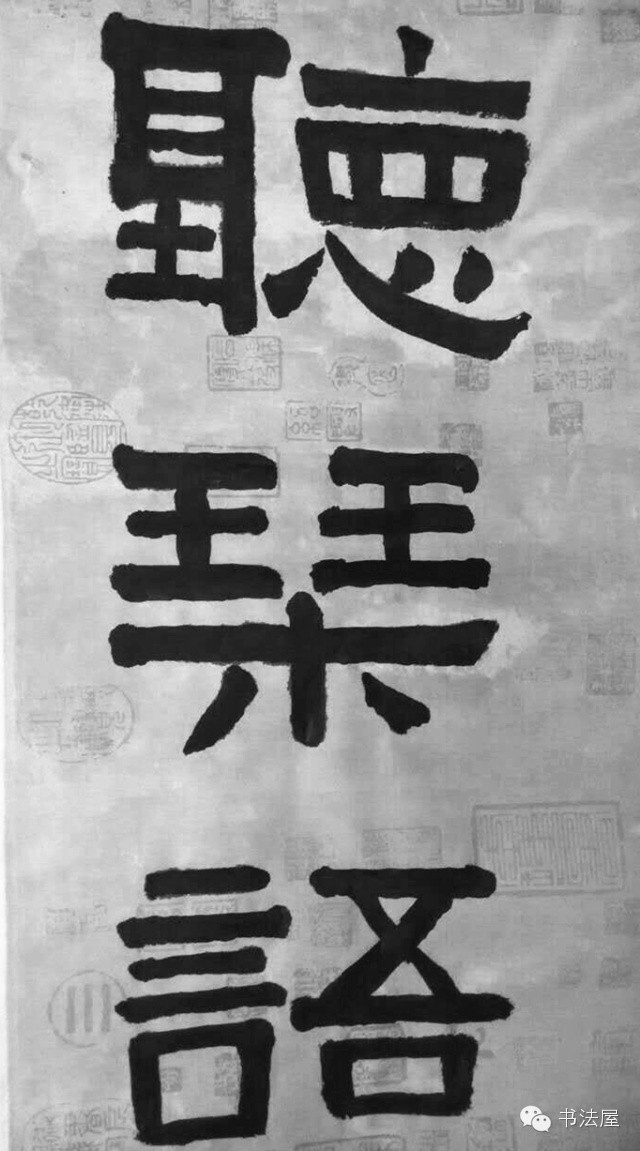 聽琹語
书法屋